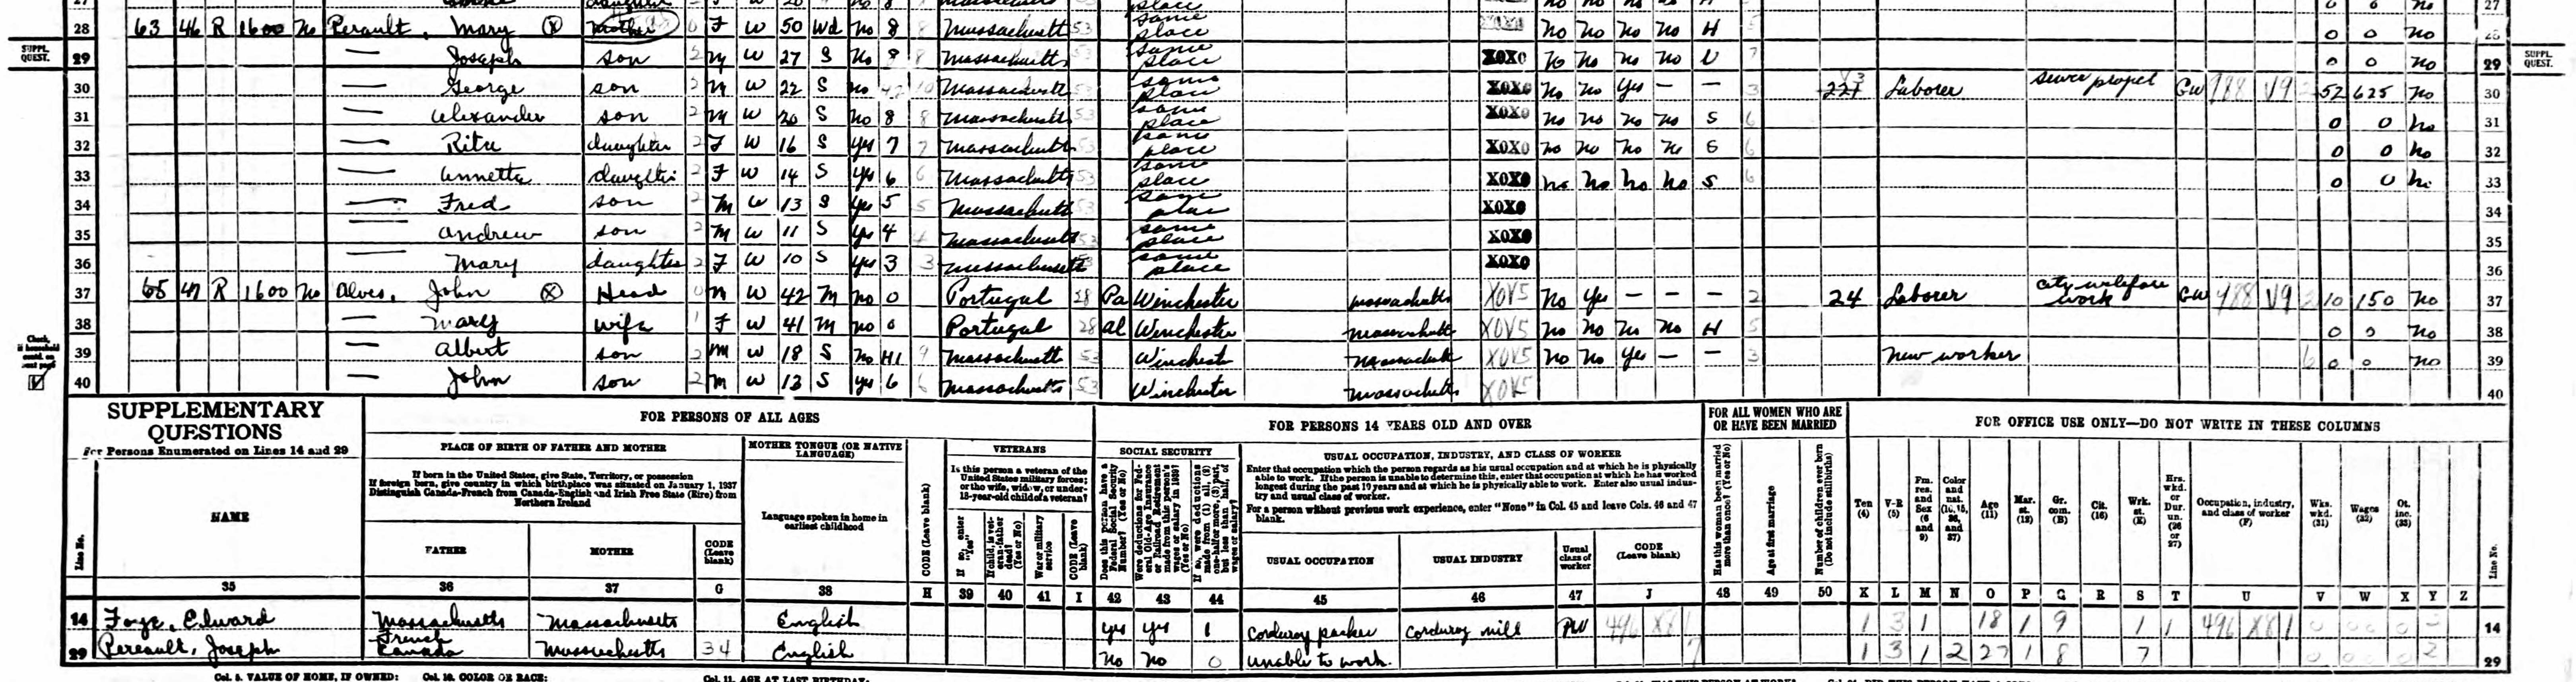 28 63 46 R 1600 no Perault, Mary Ⓧ mother 0 F W 50 Wd no 8 8 Massachusetts 53 same place no no no no H 5 0 0 no 28
SUPPL. QUEST. 29 — Joseph son 2 M W 27 S No 8 8 Massachusetts 53 same place X0X0 No No no no U 7 0 0 no 29 SUPPL. QUEST.
30 — George son 2 M W 22 S no 10 Massachusetts 53 same place X0X0 No no Yes — — 3 Laborer sewer project GW 988 V9 52 625 no 30
31 — Alexander son 2 M W 20 S No 8 8 Massachusetts 53 same place X0X0 no no no no S 6 0 0 no 31
32 — Rita daughter 2 F W 16 S yes 7 7 Massachusetts 53 same place X0X0 no no no no S 6 0 0 no 32
33 — Annette daughter 2 F W 14 S yes 6 6 Massachusetts 53 same place X0X0 no no no no S 6 0 0 no 33
34 — Fred son 2 M W 13 S Yes 5 5 Massachusetts 53 same place X0X0 34
35 — Andrew son 2 M W 11 S Yes 4 4 Massachusetts 53 same place X0X0 35
36 — Mary daughter 2 F W 10 S Yes 3 3 Massachusetts 53 same place X0X0 36
37 65 47 R 1600 No Alves, John Ⓧ Head 0 M W 42 M no 0 Portugal 28 Pa Winchester Massachusetts X0V5 No Yes — — — 2 24 Laborer city welfare work GW 988 V9 10 150 no 37
38 — Mary wife 1 F W 41 M no 0 Portugal 28 al Winchester Massachusetts X0V5 No No No No H 5 0 0 no 38
Check, if household contd. on next page 39 — Albert son 2 M W 18 S No H1 9 Massachusetts 53 Winchester Massachusetts X0V5 No No Yes — — 3 New worker 0 0 no 39
40 — John son 2 M W 13 S yes 6 6 Massachusetts 53 Winchester Massachusetts X0V5 40
SUPPLEMENTARY QUESTIONS
For Persons Enumerated on Lines 14 and 29
FOR PERSONS OF ALL AGES
FOR PERSONS 14 YEARS OLD AND OVER
FOR ALL WOMEN WHO ARE OR HAVE BEEN MARRIED
FOR OFFICE USE ONLY—DO NOT WRITE IN THESE COLUMNS
PLACE OF BIRTH OF FATHER AND MOTHER
MOTHER TONGUE (OR NATIVE LANGUAGE)
VETERANS
SOCIAL SECURITY
USUAL OCCUPATION, INDUSTRY, AND CLASS OF WORKER
Line No.
NAME
If born in the United States, give State, Territory, or possession
If foreign born, give country in which birthplace was situated on January 1, 1937
Distinguish Canada-French from Canada-English and Irish Free State (Eire) from Northern Ireland
FATHER
MOTHER
CODE (Leave blank)
Language spoken in home in earliest childhood
CODE (Leave blank)
Is this person a veteran of the United States military forces; or the wife, widow, or under-18-year-old child of a veteran?
If so, enter "Yes"
If child, is veteran-father dead? (Yes or No)
War or military service
CODE (Leave blank)
Does this person have a Federal Social Security Number? (Yes or No)
Were deductions for Federal Old-Age Insurance or Railroad Retirement made from this person's wages or salary in 1939? (Yes or No)
If so, were deductions made from (1) all, (2) one-half or more, (3) part, but less than half, of wages or salary?
Enter that occupation which the person regards as his usual occupation and at which he is physically able to work. If the person is unable to determine this, enter that occupation at which he has worked longest during the past 10 years and at which he is physically able to work. Enter also usual industry and usual class of worker.
For a person without previous work experience, enter "None" in Col. 45 and leave Cols. 46 and 47 blank.
USUAL OCCUPATION
USUAL INDUSTRY
Usual class of worker
CODE (Leave blank)
Has this woman been married more than once? (Yes or No)
Age at first marriage
Number of children ever born (Do not include stillbirths)
Ten (4)
V-R (5)
Fm. res. and Sex (6 and 9)
Color and nat. (10, 15, 36, and 37)
Age (11)
Mar. st. (12)
Gr. com. (B)
Cit. (16)
Wrk. st. (E)
Hrs. wkd. or Dur. un. (26 or 27)
Occupation, industry, and class of worker (F)
Wks. wkd. (31)
Wages (32)
Ot. inc. (33)
Line No.
35 36 37 G 38 H 39 40 41 I 42 43 44 45 46 47 J 48 49 50 K L M N O P Q R S T U V W X Y Z
14 Foye, Edward Massachusetts Massachusetts English yes yes 1 Corduroy packer Corduroy mill PW 496 X8 1 1 3 1 18 1 9 1 1 496 X8 1 14
29 Pereault, Joseph French Canada Massachusetts 34 English No No 0 unable to work. 7 1 3 1 2 27 1 8 7 29
Col. 5. VALUE OF HOME, IF OWNED: Col. 10. COLOR OR RACE: Col. 11. AGE AT LAST BIRTHDAY: